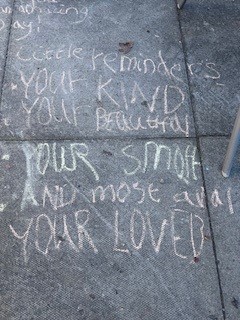 amazing
day!
Little reminders
YOUR KIND
YOUR Beautiful
YOUR SMart
AND most of all
YOUR LOVED